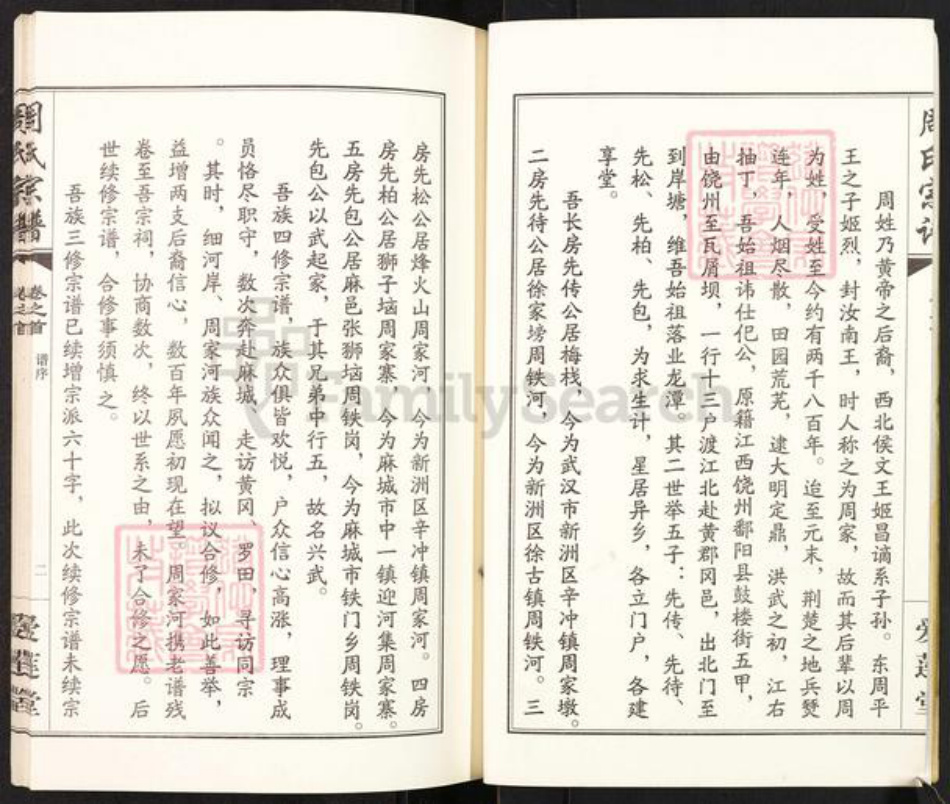 周姓乃黄帝之后裔，西北侯文王姬昌谪系子孙。东周平
王之子姬烈，封汝南王，时人称之为周家，故而其后辈以周
为姓，受姓至今约有两千八百年。迨至元末，荆楚之地兵燹
连年，人烟尽散，田园荒芜，逮大明定鼎，洪武之初，江右
抽丁，吾始祖讳仕祀公，原籍江西饶州鄱阳县鼓楼街五甲，
由饶州至瓦屑坝，一行十三户渡江北赴黄郡冈邑，出北门至
到岸塘，维吾始祖落业龙潭。其二世举五子：先传、先待、
先松、先柏、先包，为求生计，星居异乡，各立门户，各建
享堂。
吾长房先传公居梅栈，今为武汉市新洲区辛冲镇周家墩。
二房先待公居徐家塝周铁河，今为新洲区徐古镇周铁河。三
房先松公居烽火山周家河，今为新洲区辛冲镇周家河。四房
房先柏公居狮子垴周家寨，今为麻城市中一镇迎河集周家寨。
五房先包公居麻邑张狮垴周铁岗，今为麻城市铁门乡周铁岗。
先包公以武起家，于其兄弟中行五，故名兴武。
吾族四修宗谱，族众俱皆欢悦，户众信心高涨，理事成
员恪尽职守，数次奔赴麻城，走访黄冈、罗田，寻访同宗
。其时，细河岸、周家河族众闻之，拟议合修，如此善举，
益增两支后裔信心，数百年夙愿初现在望。周家河携老谱残
卷至吾宗祠，协商数次，终以世系之由，未了合修之愿。后
世续修宗谱，合修事须慎之。
吾族三修宗谱已续增宗派六十字，此次续修宗谱未续宗
周氏宗谱
卷之首
谱序
二
爱莲堂
FamilySearch